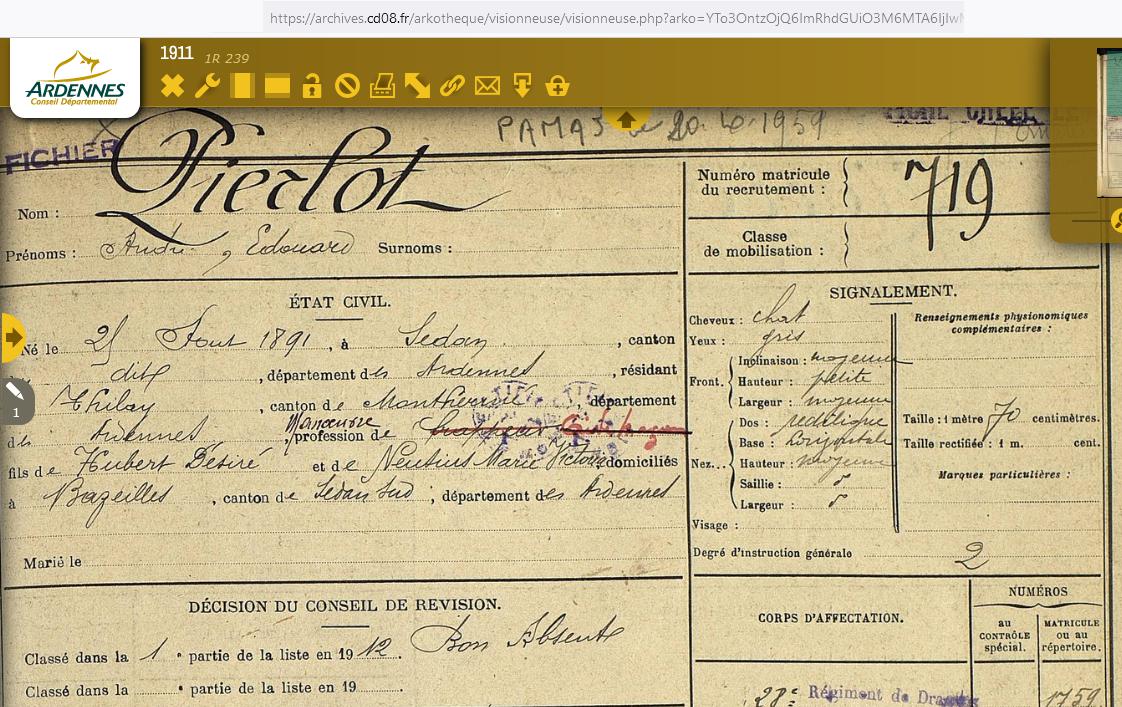 https://archives.cd08.fr/arkotheque/visionneuse/visionneuse.php?arko=YTo3OntzOjQ6ImRhdGUiO3M6MTA6IjIw
1911 1R 239
ARDENNES
Conseil Départemental
PAMAS le 20.6.1959
FICHIER
Nom : Pierlot
Prénoms : André, Edouard Surnoms :
Numéro matricule du recrutement : 719
Classe de mobilisation :
ÉTAT CIVIL.
Né le 25 Aout 1891, à Sedan, canton
dit, département des Ardennes, résidant
Thilay, canton de Monthermé, département
des Ardennes profession de Manoeuvre
fils de Hubert Désiré et de Neutius Marie Victoire domiciliés
à Bazeilles, canton de Sedan Sud, département des Ardennes
Marié le
DÉCISION DU CONSEIL DE REVISION.
Classé dans la 1e partie de la liste en 1912. Bon Absent
Classé dans la e partie de la liste en 19
SIGNALEMENT.
Cheveux : chat
Yeux : gris
Front. Inclinaison : moyenne
Hauteur : petite
Largeur : moyenne
Nez. Dos : rectiligne
Base : horizontale
Hauteur : moyenne
Saillie :
Largeur :
Visage :
Renseignements physionomiques complémentaires :
Taille : 1 mètre 70 centimètres.
Taille rectifiée : 1 m. cent.
Marques particulières :
Degré d'instruction générale 2
CORPS D'AFFECTATION.
NUMÉROS
au CONTRÔLE spécial.
MATRICULE ou au répertoire.
28e Régiment de Dragons 1759
1